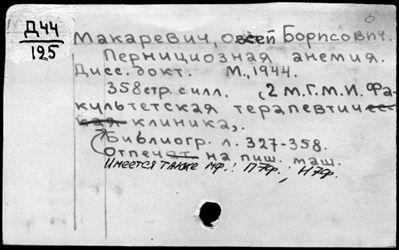 Д44
125
Макаревич, Овсей Борисович.
Пернициозная анемия.
Дисс. докт. М., 1944.
358 стр. с илл. (2 М.Г.М.И. Фа-
культетская терапевтичес-
кая клиника).
Библиогр. л. 327-358.
Отпечат на пиш. маш.
Имеется также мф.: П7ф.; Н7ф.